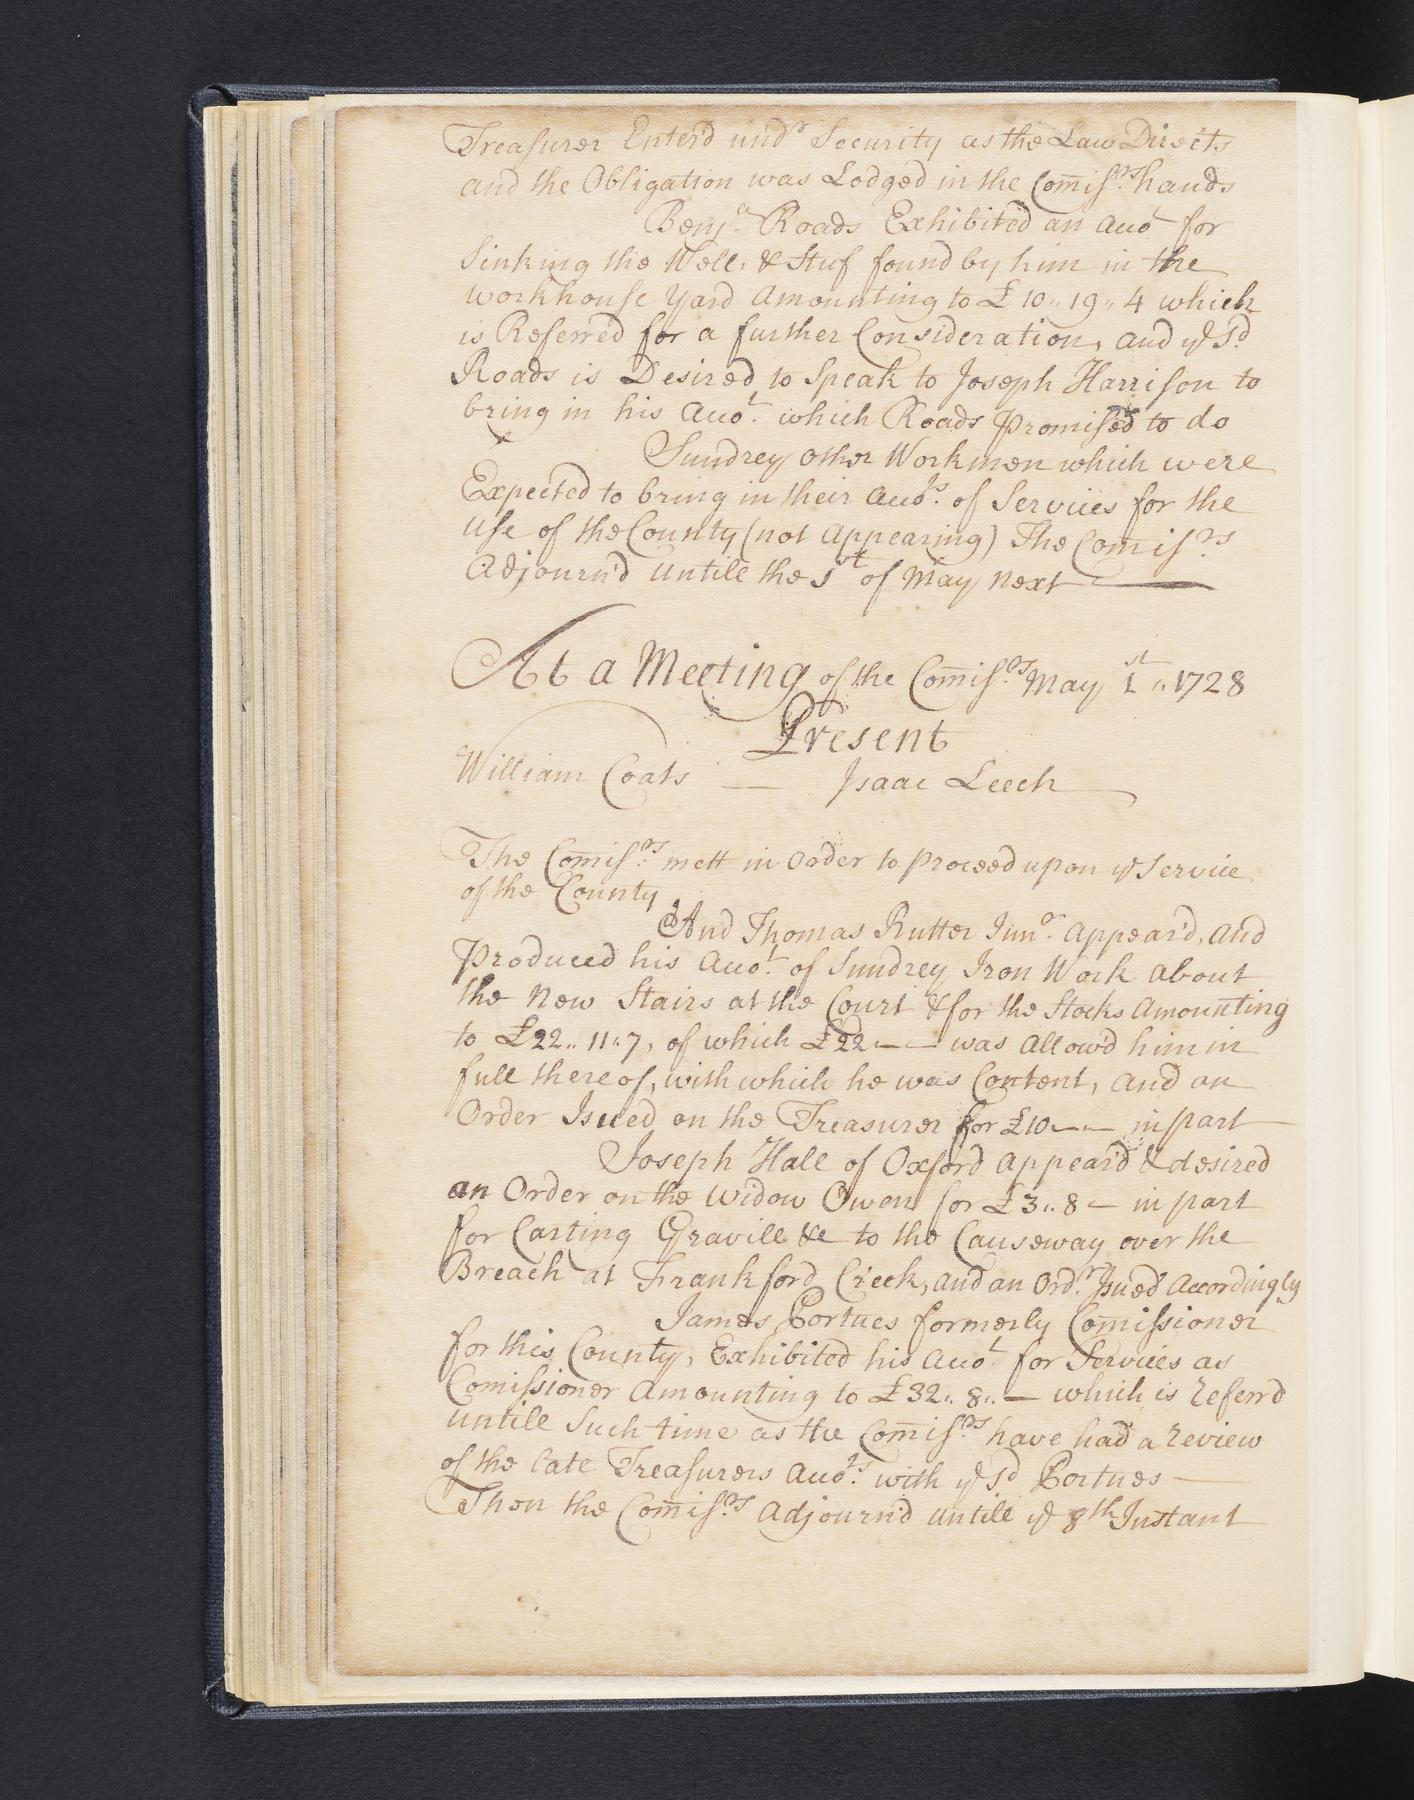 Treasurer Enter'd undr Security as the Law Directs
and the Obligation was Lodged in the Comissrs hands
Benja Roads Exhibited an Accot for
Sinking the Well, & Stuf found by him in the
workhouse Yard Amounting to £10,,19,,4 which
is Referr'd for a further Consideration, and ye sd
Roads is Desired to Speak to Joseph Harrison to
bring in his Accot which Roads Promised to do
Sundrey other Workmen which were
Expected to bring in their Accots of Services for the
Use of the County (not Appearing) The Comissrs
Adjourn'd untill the 1st of May next
At a Meeting of the Comissrs May 1st,, 1728
Present
William Coats — Isaac Leech
The Comissrs mett in Order to proceed upon ye Service
of the County
And Thomas Rutter Junr Appear'd, and
Produced his Accot of Sundrey Iron Work about
the New Stairs at the Court & for the Stocks Amounting
to £22,,11,,7, of which £22 — — was Allow'd him in
full thereof, with which he was Content, and an
Order Isued on the Treasurer for £10 — — in part
Joseph Hall of Oxford appear'd & desired
an Order on the Widow Owen for £3,,8 — in part
for Carting Gravill &c to the Causeway over the
Breach at Frankford Creek, and an Ordr Isued Accordingly
James Portues formerly Comissioner
for this County, Exhibited his Accot for Services as
Comissioner Amounting to £32,,8,,— which is referr'd
untill Such time as the Comissrs have had a review
of the late Treasurers Accots with ye sd Portues —
Then the Comissrs Adjourn'd untill ye 8th Instant